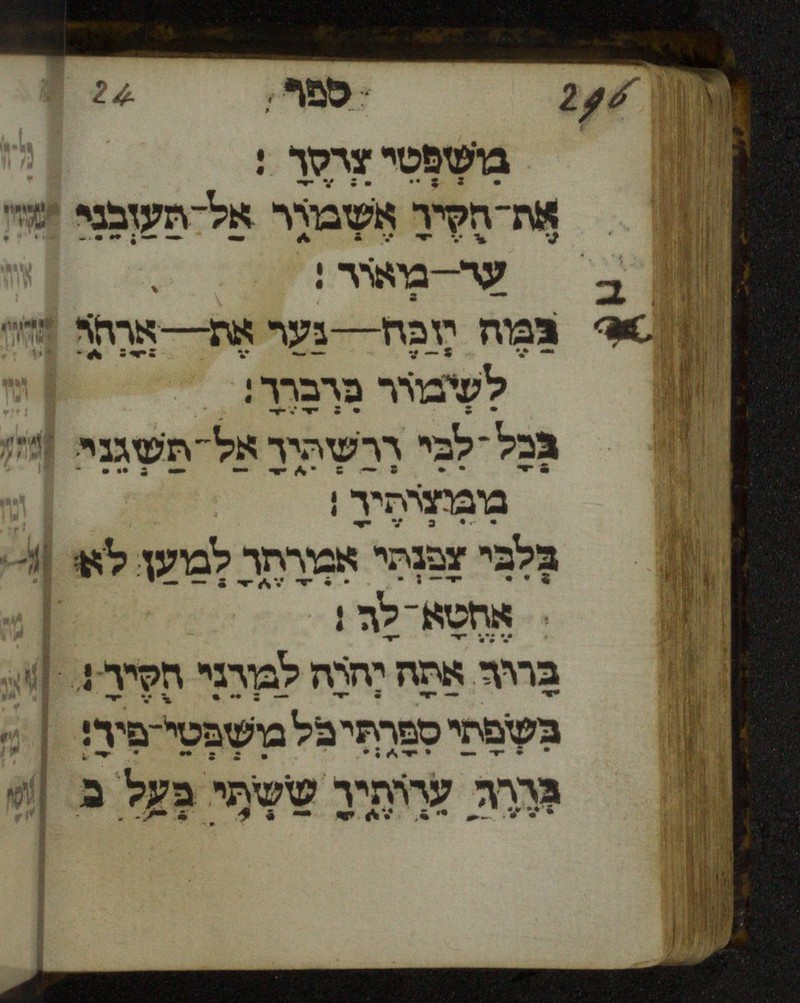 296 ספר 24
מִשְׁפְּטֵי צִדְקֶךָ׃
אֶת־חֻקֶּיךָ אֶשְׁמוֹר אַל־תַּעַזְבֵנִי
עַד־מְאוֹד׃
ב
בַּמֶּה יְזַכֶּה־נַּעַר אֶת־אָרְחוֹ
לִשְׁימוֹר כִּדְבָרֶךָ׃
בְּכָל־לִבִּי דְרַשְׁתִּיךָ אַל־תַּשְׁגֵּנִי
מִמִּצְוֹתֶיךָ׃
בְּלִבִּי צָפַנְתִּי אִמְרָתֶךָ לְמַעַן לֹא
אֶחֱטָא־לָךְ׃
בָּרוּךְ אַתָּה יְהוָֹה לַמְּדֵנִי חֻקֶּיךָ׃
בִּשְׂפָתַי סִפַּרְתִּי כֹּל מִשְׁפְּטֵי־פִיךָ׃
בְּדֶרֶךְ עֵדְוֹתֶיךָ שַׂשְׂתִּי כְּעַל כ